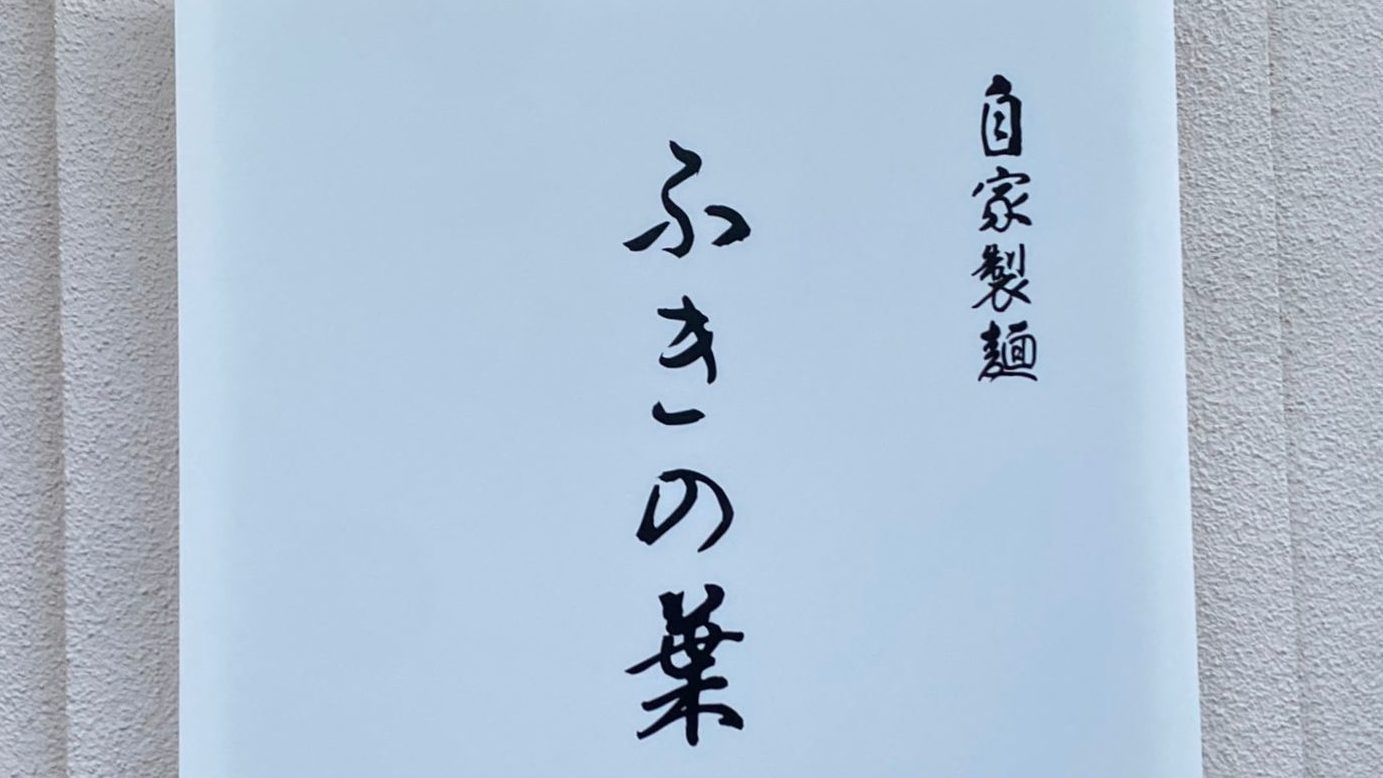 自家製麺
ふきの葉